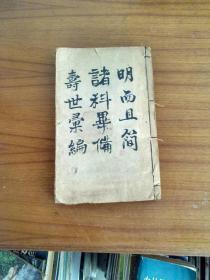 明而且简
諸科畢備
壽世彙編